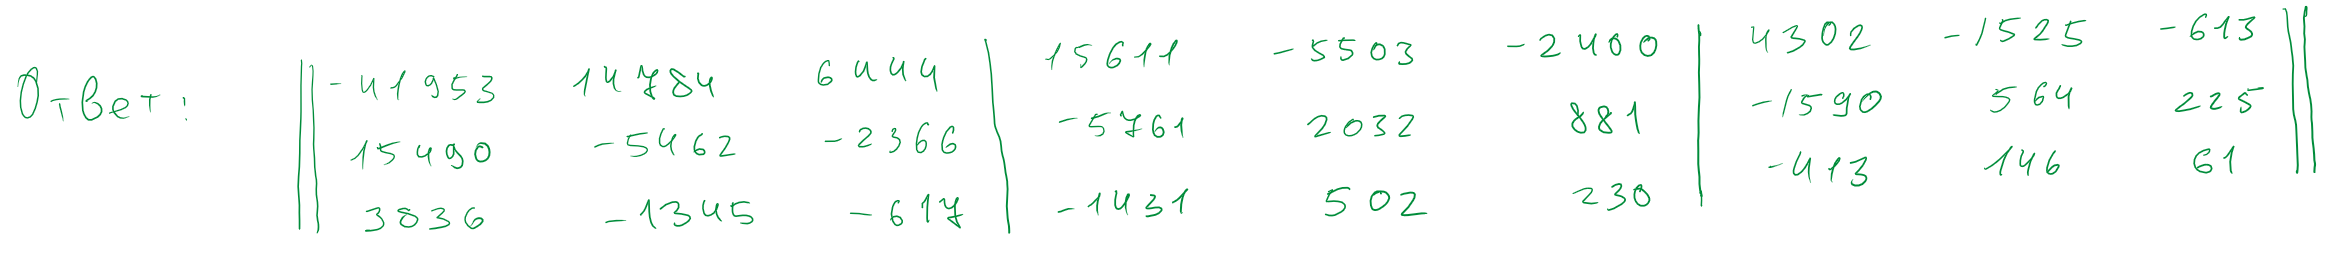 Ответ: || -41953 14784 6444 | 15611 -5503 -2400 | 4302 -1525 -613 ||
15490 -5462 -2366 | -5761 2032 881 | -1590 564 225
3836 -1345 -617 | -1431 502 230 | -413 146 61